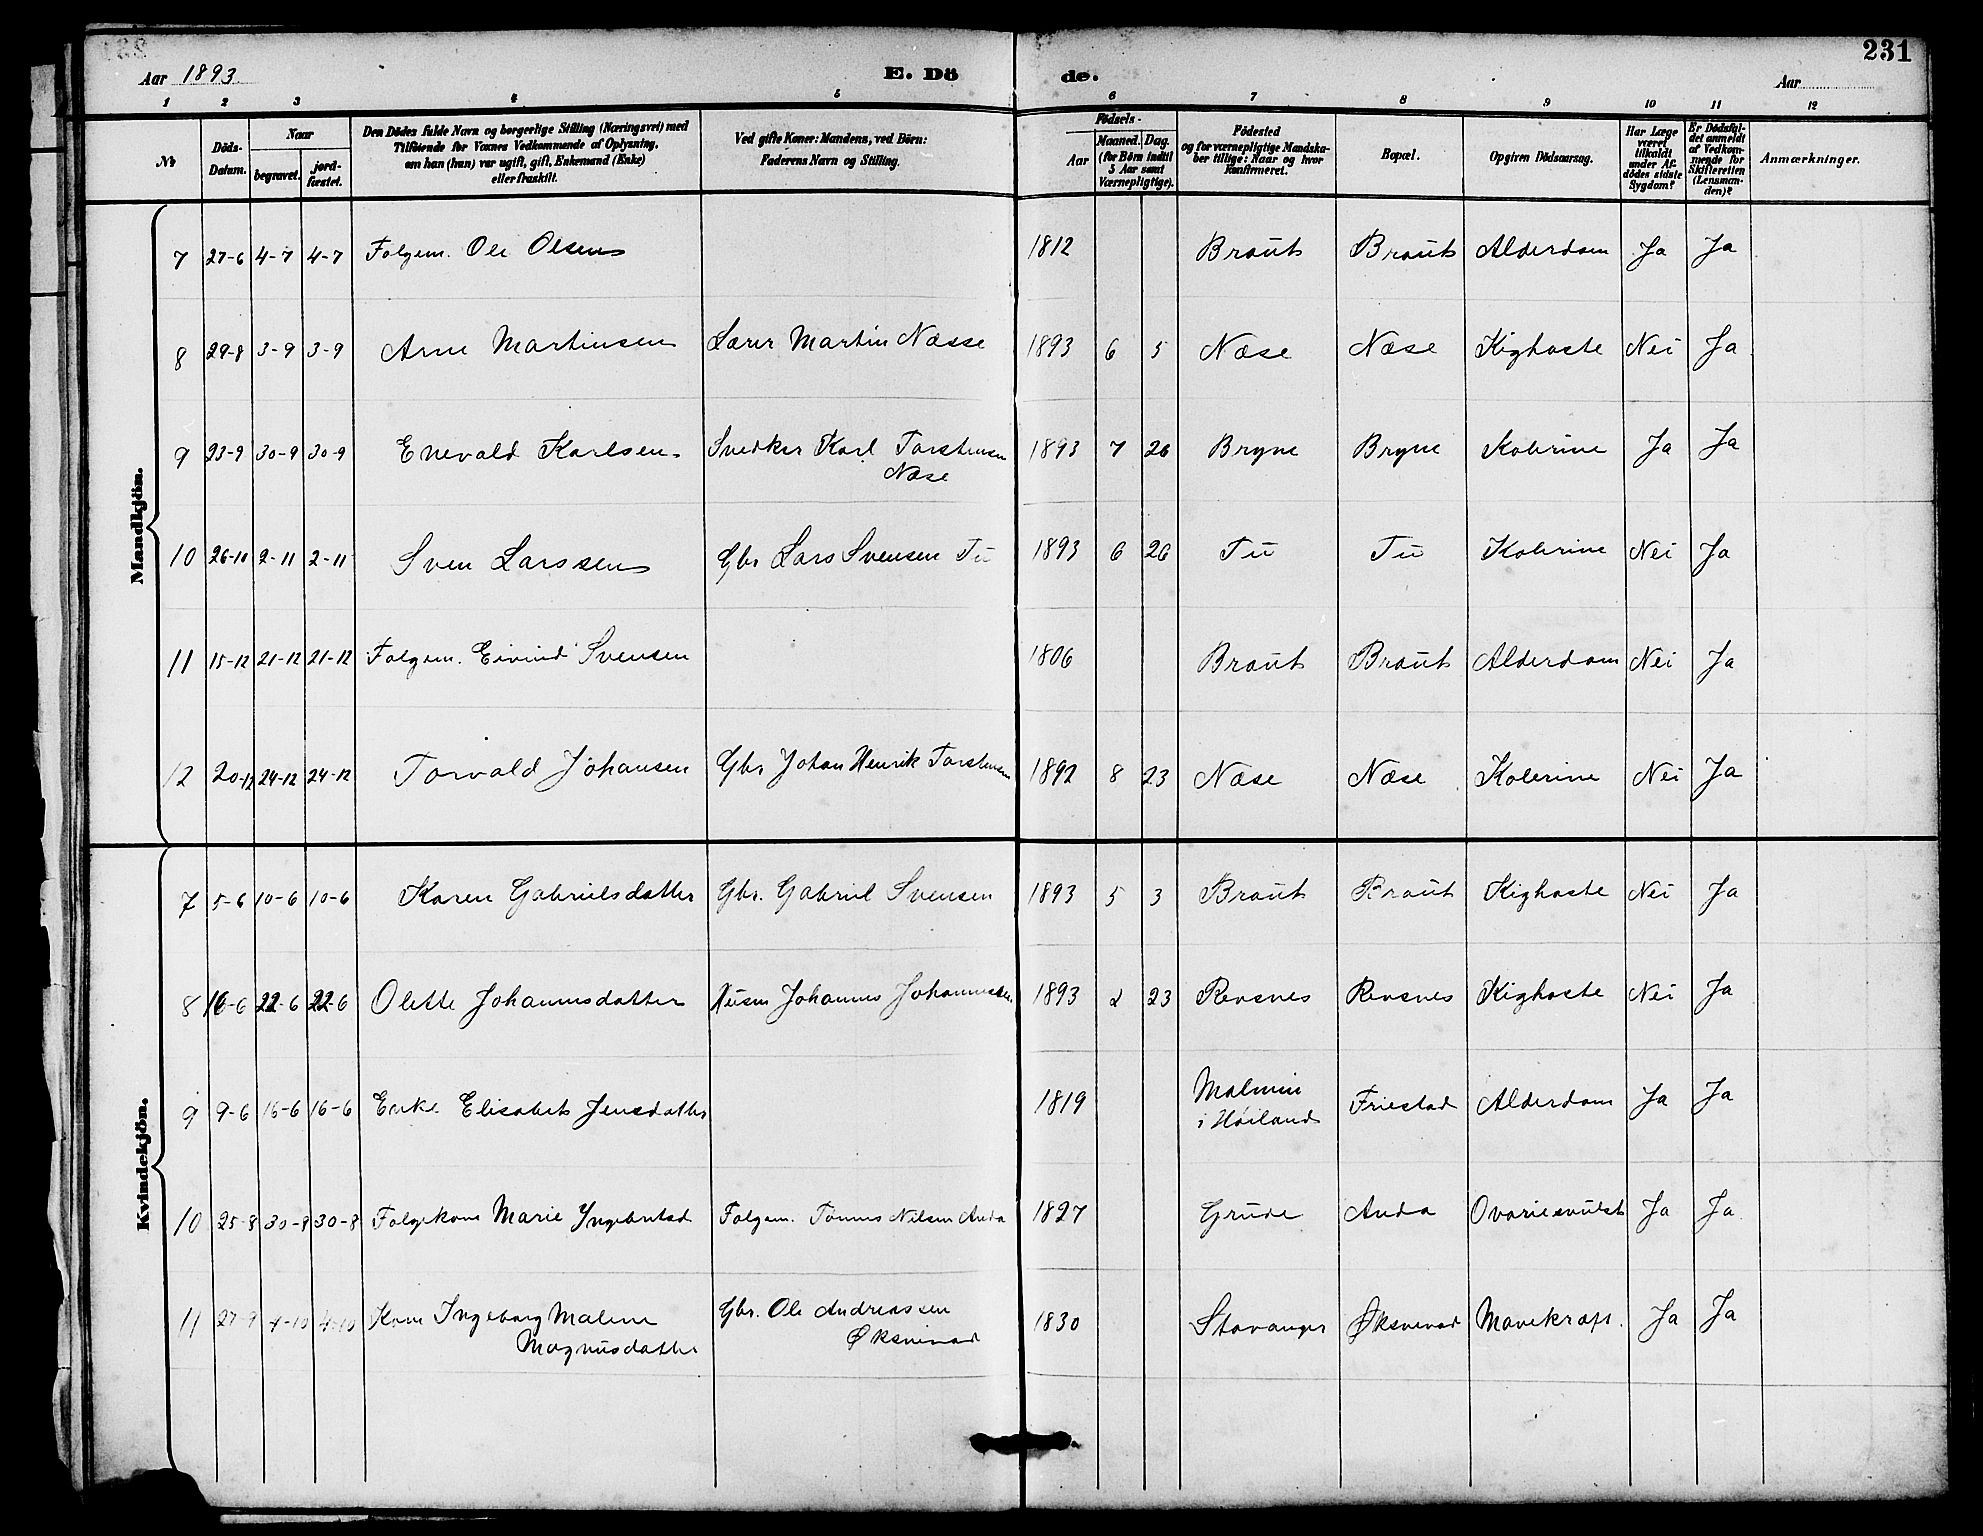 231
Aar 1893.
E. Dö de.
Aar
1 2 3 4 5 6 7 8 9 10 11 12
№
Döds-Datum.
Naar
begravet.
jord-fæstet.
Den Dödes fulde Navn og borgerlige Stilling (Næringsvei) med
Tilföiende for Voxnes Vedkommende af Oplysning,
om han (hun) var ugift, gift, Enkemand (Enke)
eller fraskilt.
Ved gifte Koner: Mandens, ved Börn:
Faderens Navn og Stilling.
Födsels-
Aar
Maaned. Dag.
(for Börn indtil
5 Aar samt
Værnepligtige).
Födested
og for værnepligtige Mandska-
ber tillige: Naar og hvor
konfirmeret.
Bopæl.
Opgiven Dödsaarsag.
Har Læge
været
tilkaldt
under Af-
dödes sidste
Sygdom?
Er Dödsfal-
det anmeldt
af Vedkom-
mende for
Skifteretten
(Lensman-
den)?
Anmærkninger.
Mandkjön.
7 27-6 4-7 4-7 Folgem. Ole Olsen 1812 Braut Braut Alderdom Ja Ja
8 29-8 3-9 3-9 Arne Martinsen Lærer Martin Næsse 1893 6 5 Næse Næse Kighoste Nei Ja
9 23-9 30-9 30-9 Enevald Karlsen. Snedker Karl Torstensen 1893 7 26 Bryne Bryne Kolerine Ja Ja
Næse
10 26-10 2-11 2-11 Sven Larssen Gbr Lars Svensen Tu 1893 6 26 Tu Tu Kolerine Nei Ja
11 15-12 21-12 21-12 Folgem. Eivind Svensen 1806 Braut Braut Alderdom Nei Ja
12 20-12 24-12 24-12 Torvald Johansen Gbr Johan Henrik Torstensen 1892 8 23 Næse Næse Kolerine Nei Ja
Kvindekjön.
7 5-6 10-6 10-6 Karen Gabrielsdatter Gbr. Gabriel Svensen 1893 5 3 Braut Braut Kighoste Nei Ja
8 16-6 22-6 22-6 Olette Johannesdatter Husm Johannes Johannessen 1893 2 23 Revsnes Revsnes Kighoste Nei Ja
9 9-6 16-6 16-6 Enke Elisabet Jensdatter 1819 Malmin
i Høiland Friestad Alderdom Ja Ja
10 25-8 30-8 30-8 Folgekone Marie Yngebretsd Folgem. Tønnes Nilsen Anda 1827 Grude Anda Ovariesvulst Ja Ja
11 27-9 4-10 4-10 Kone Ingeborg Malene Gbr. Ole Andreassen 1830 Stavanger Øksnevad Mavekræft. Ja Ja
Magnusdatter Øksnevad